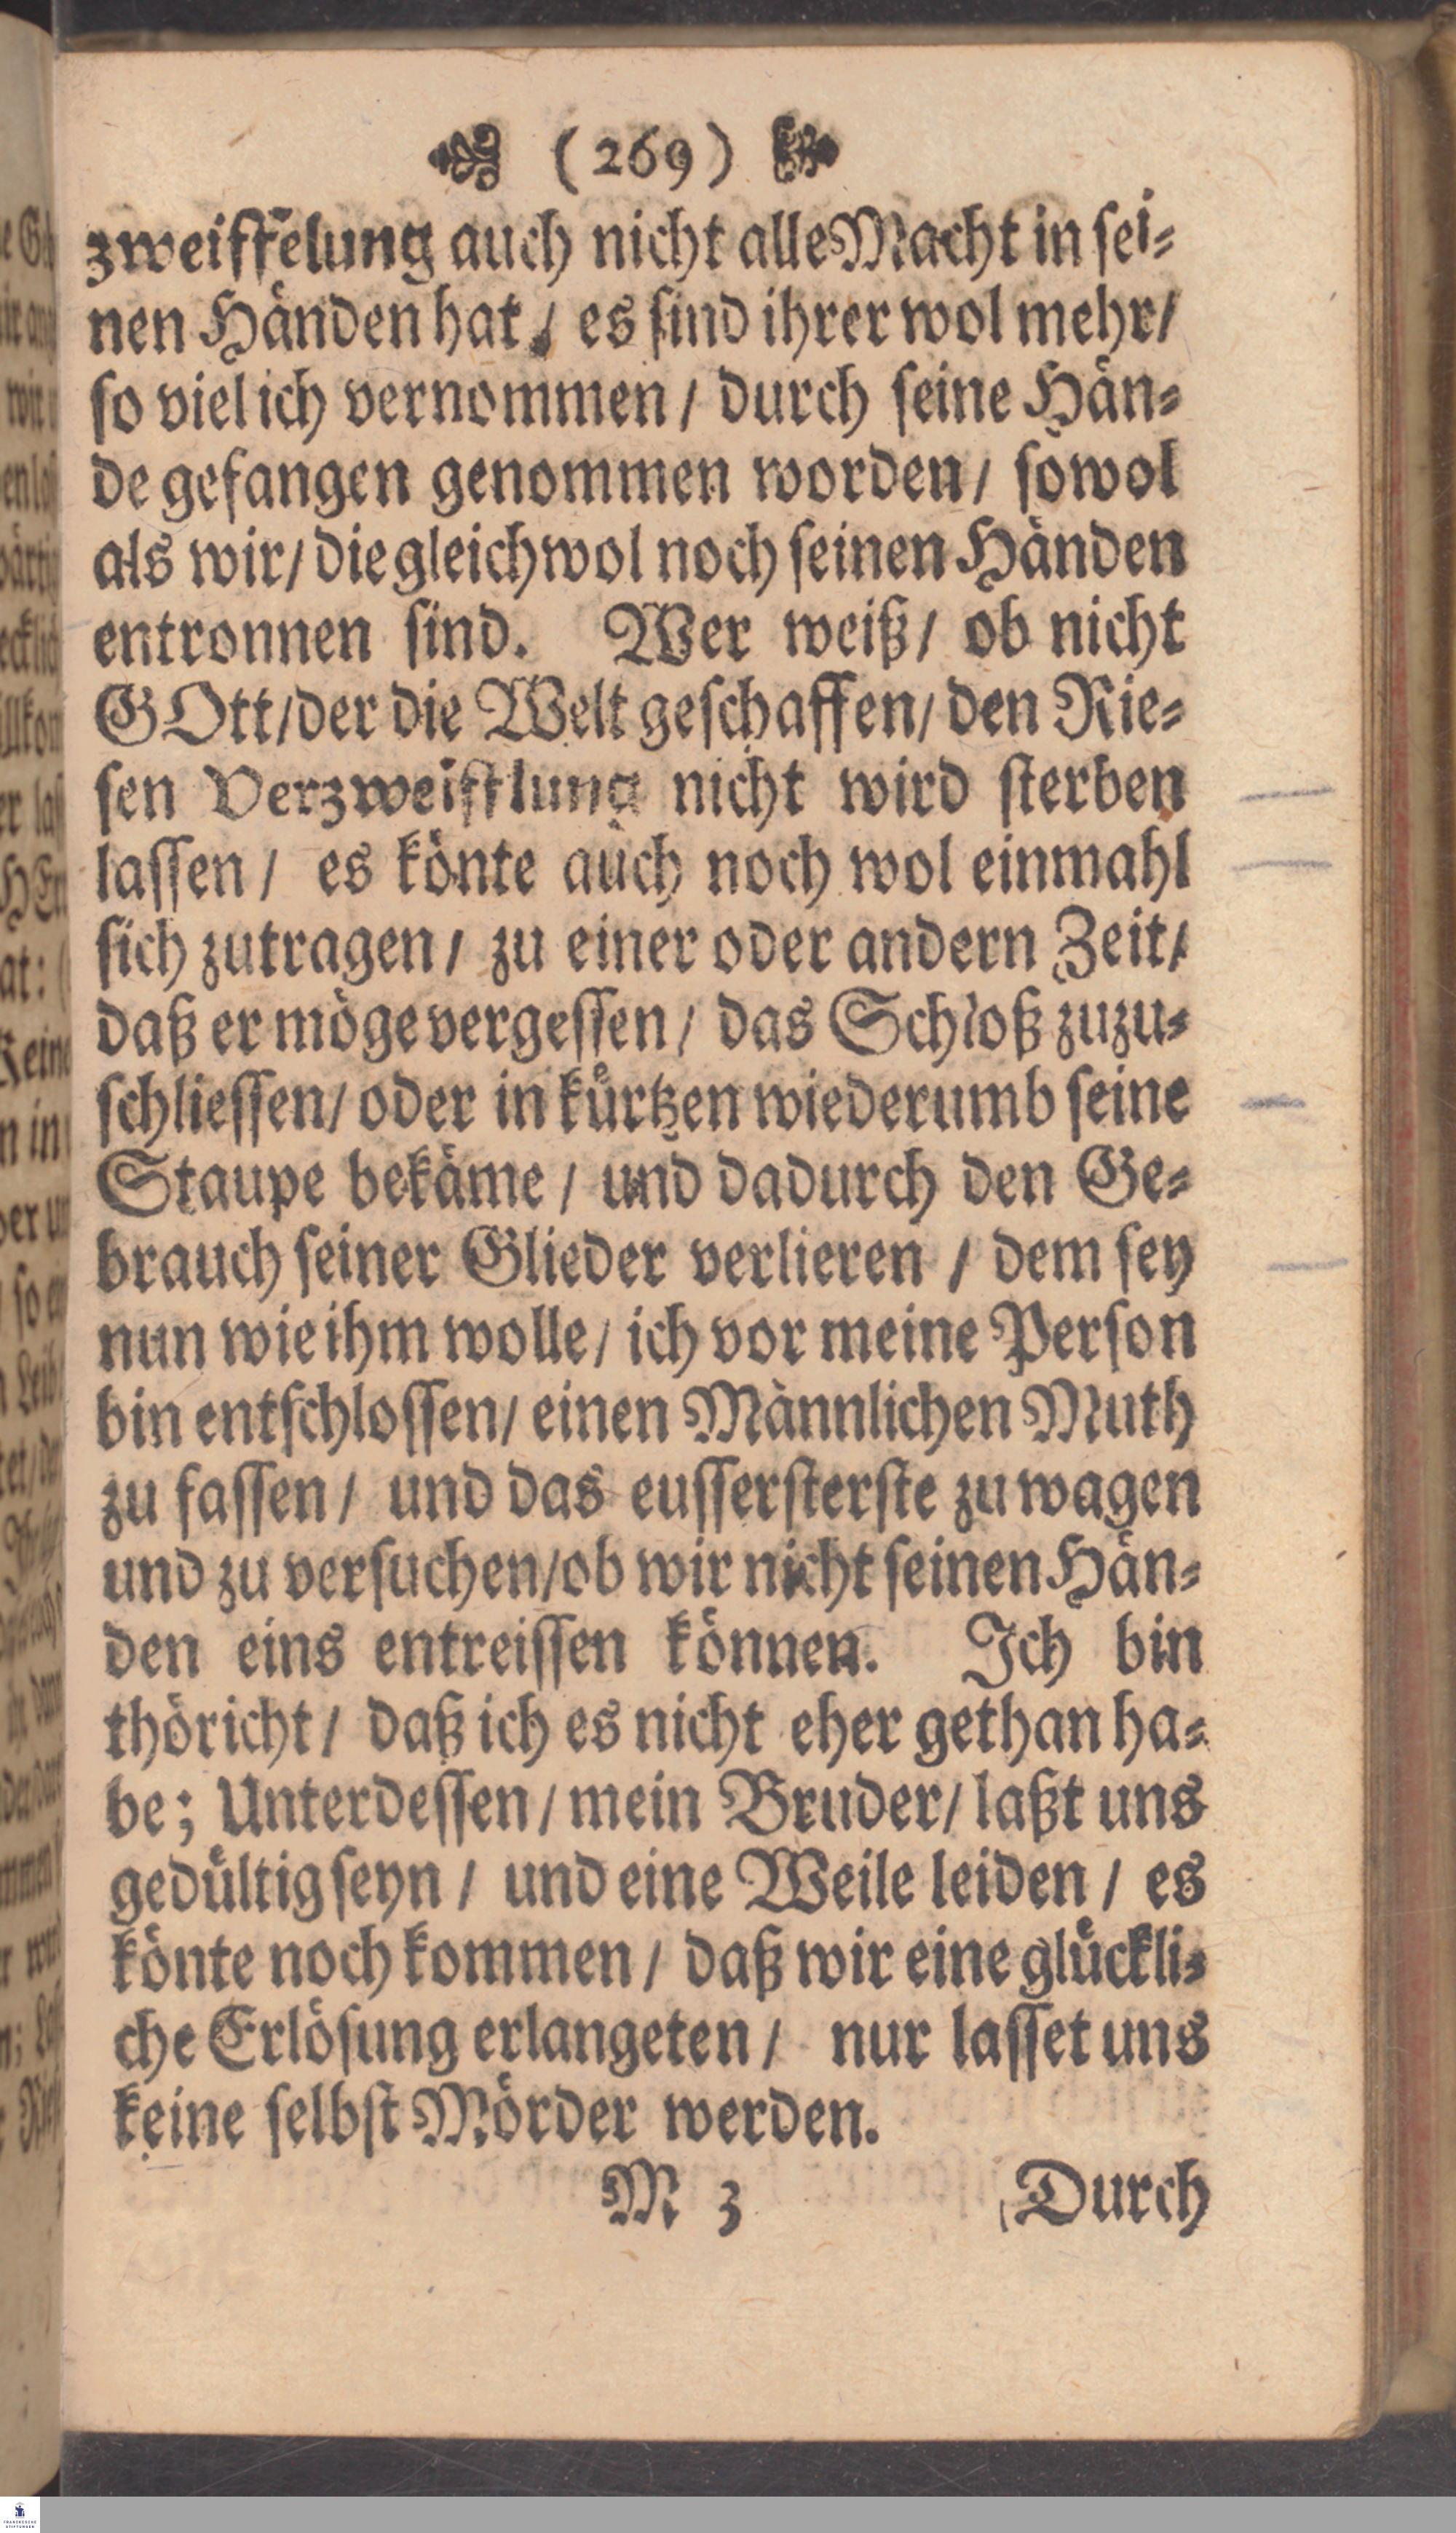 (269)
zweiffelung auch nicht alle Macht in sei-
nen Händen hat / es sind ihrer wol mehr/
so viel ich vernommen / durch seine Hän-
de gefangen genommen worden / sowol
als wir/ die gleichwol noch seinen Händen
entronnen sind. Wer weiß / ob nicht
GOtt/der die Welt geschaffen/ den Rie-
sen Verzweifflung nicht wird sterben
lassen / es könte auch noch wol einmahl
sich zutragen / zu einer oder andern Zeit/
daß er möge vergessen / das Schloß zuzu-
schliessen/ oder in kürtzen wiederumb seine
Staupe bekäme / und dadurch den Ge-
brauch seiner Glieder verlieren / dem sey
nun wie ihm wolle / ich vor meine Person
bin entschlossen/ einen Männlichen Muth
zu fassen / und das eussersterste zu wagen
und zu versuchen/ob wir nicht seinen Hän-
den eins entreissen können. Ich bin
thöricht / daß ich es nicht eher gethan ha-
be; Unterdessen / mein Bruder/ laßt uns
gedültig seyn / und eine Weile leiden / es
könte noch kommen / daß wir eine glückli-
che Erlösung erlangeten / nur lasset uns
keine selbst Mörder werden.
M 3 Durch